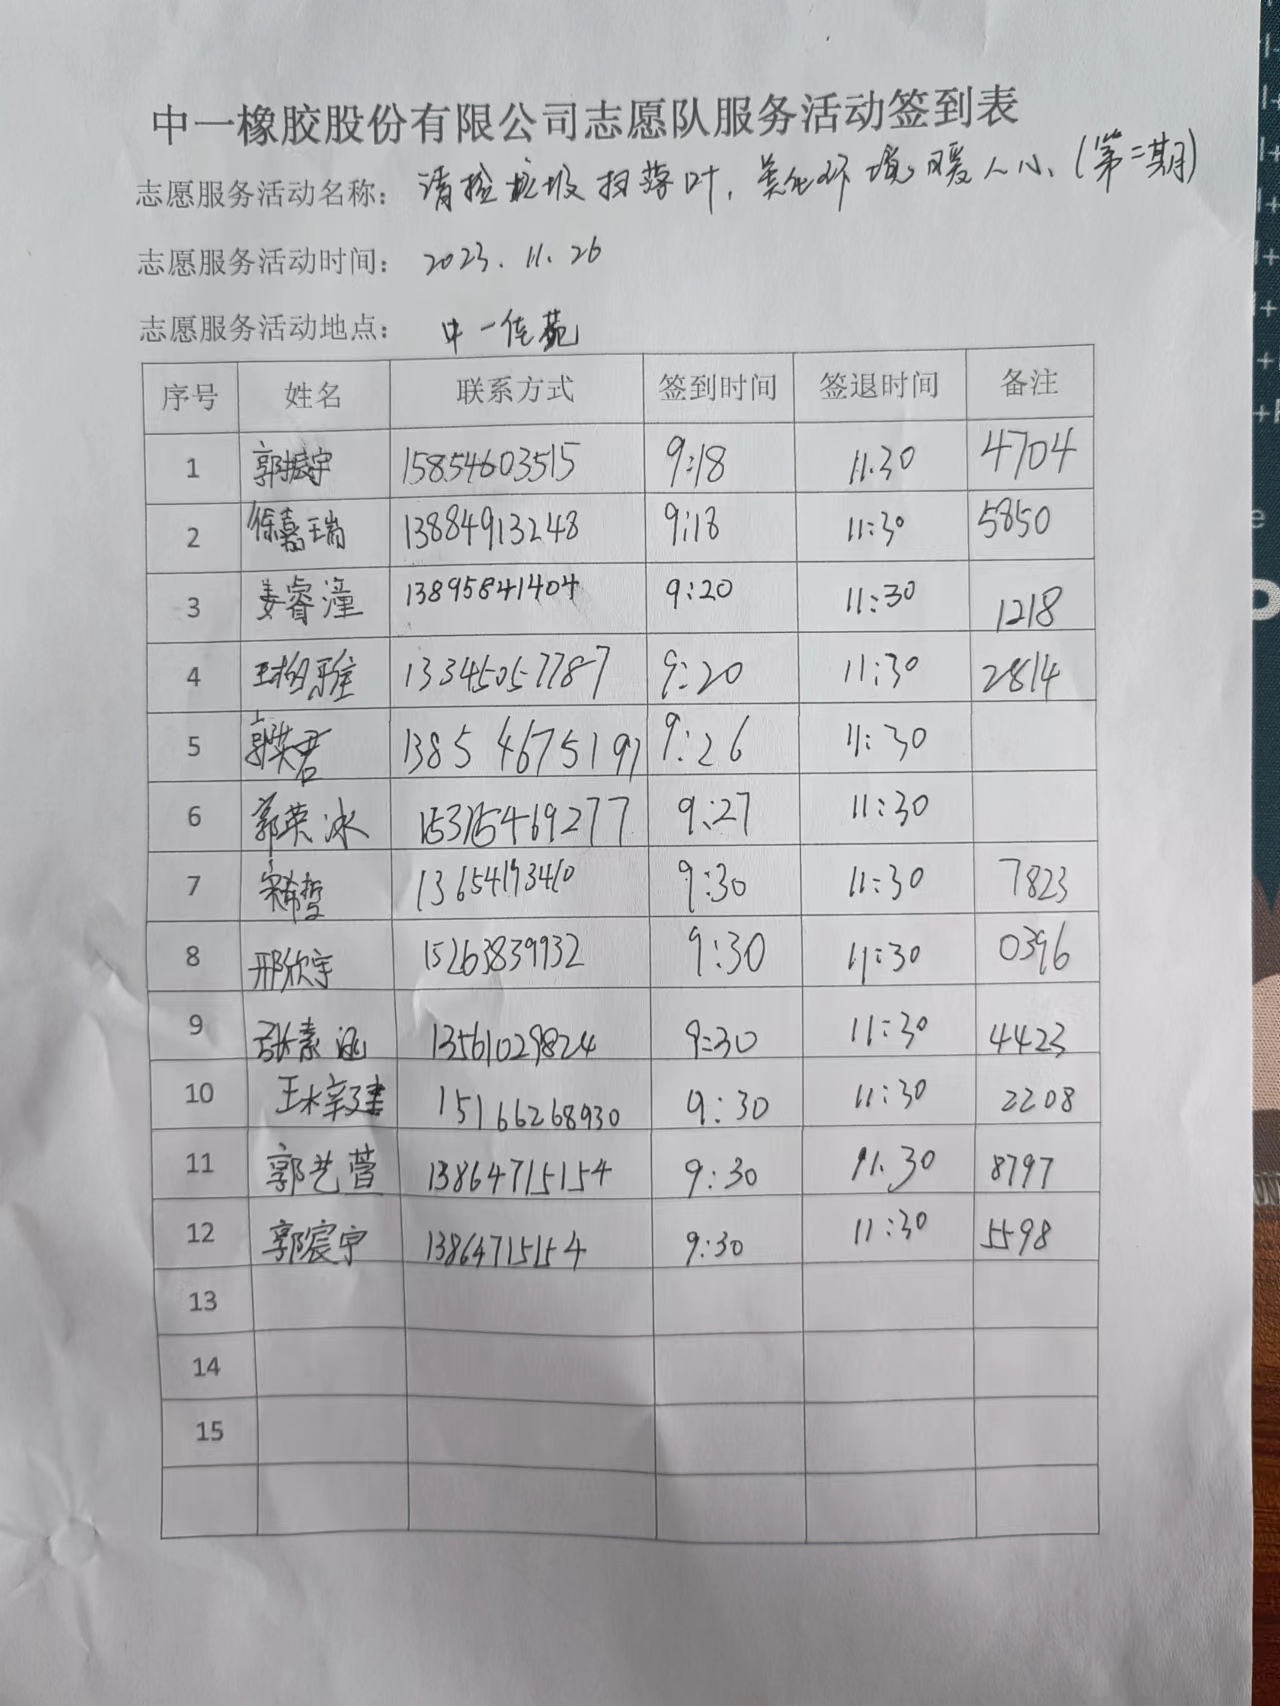 中一橡胶股份有限公司志愿队服务活动签到表
志愿服务活动名称： 清捡垃圾扫落叶，美化环境暖人心（第二期）
志愿服务活动时间： 2023.11.26
志愿服务活动地点： 中一佳苑
序号 姓名 联系方式 签到时间 签退时间 备注
1 郭振宇 15854603515 9:18 11.30 4704
2 徐嘉瑞 13884913248 9:18 11:30 5850
3 姜睿潼 13895841404 9:20 11:30 1218
4 13345057787 9:20 11:30 2814
5 郭英君 13854675197 9:26 11:30
6 郭英冰 9:27 11:30
7 宋希哲 13654193410 9:30 11:30 7823
8 邢欣宇 15263839932 9:30 11:30 0396
9 张素涵 13561029824 9:30 11:30 4423
10 15166268930 9:30 11:30 2208
11 郭艺萱 13864715154 9:30 11.30 8797
12 郭宸宇 13864715154 9:30 11:30 5598
13
14
15